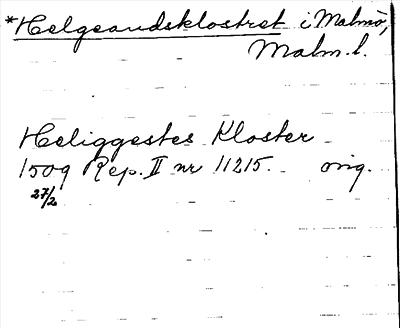 *Helgeandsklostret i Malmö,
Malm.l.
Heliggestes Kloster
1509 Rep. II nr 11215. orig.
27/2